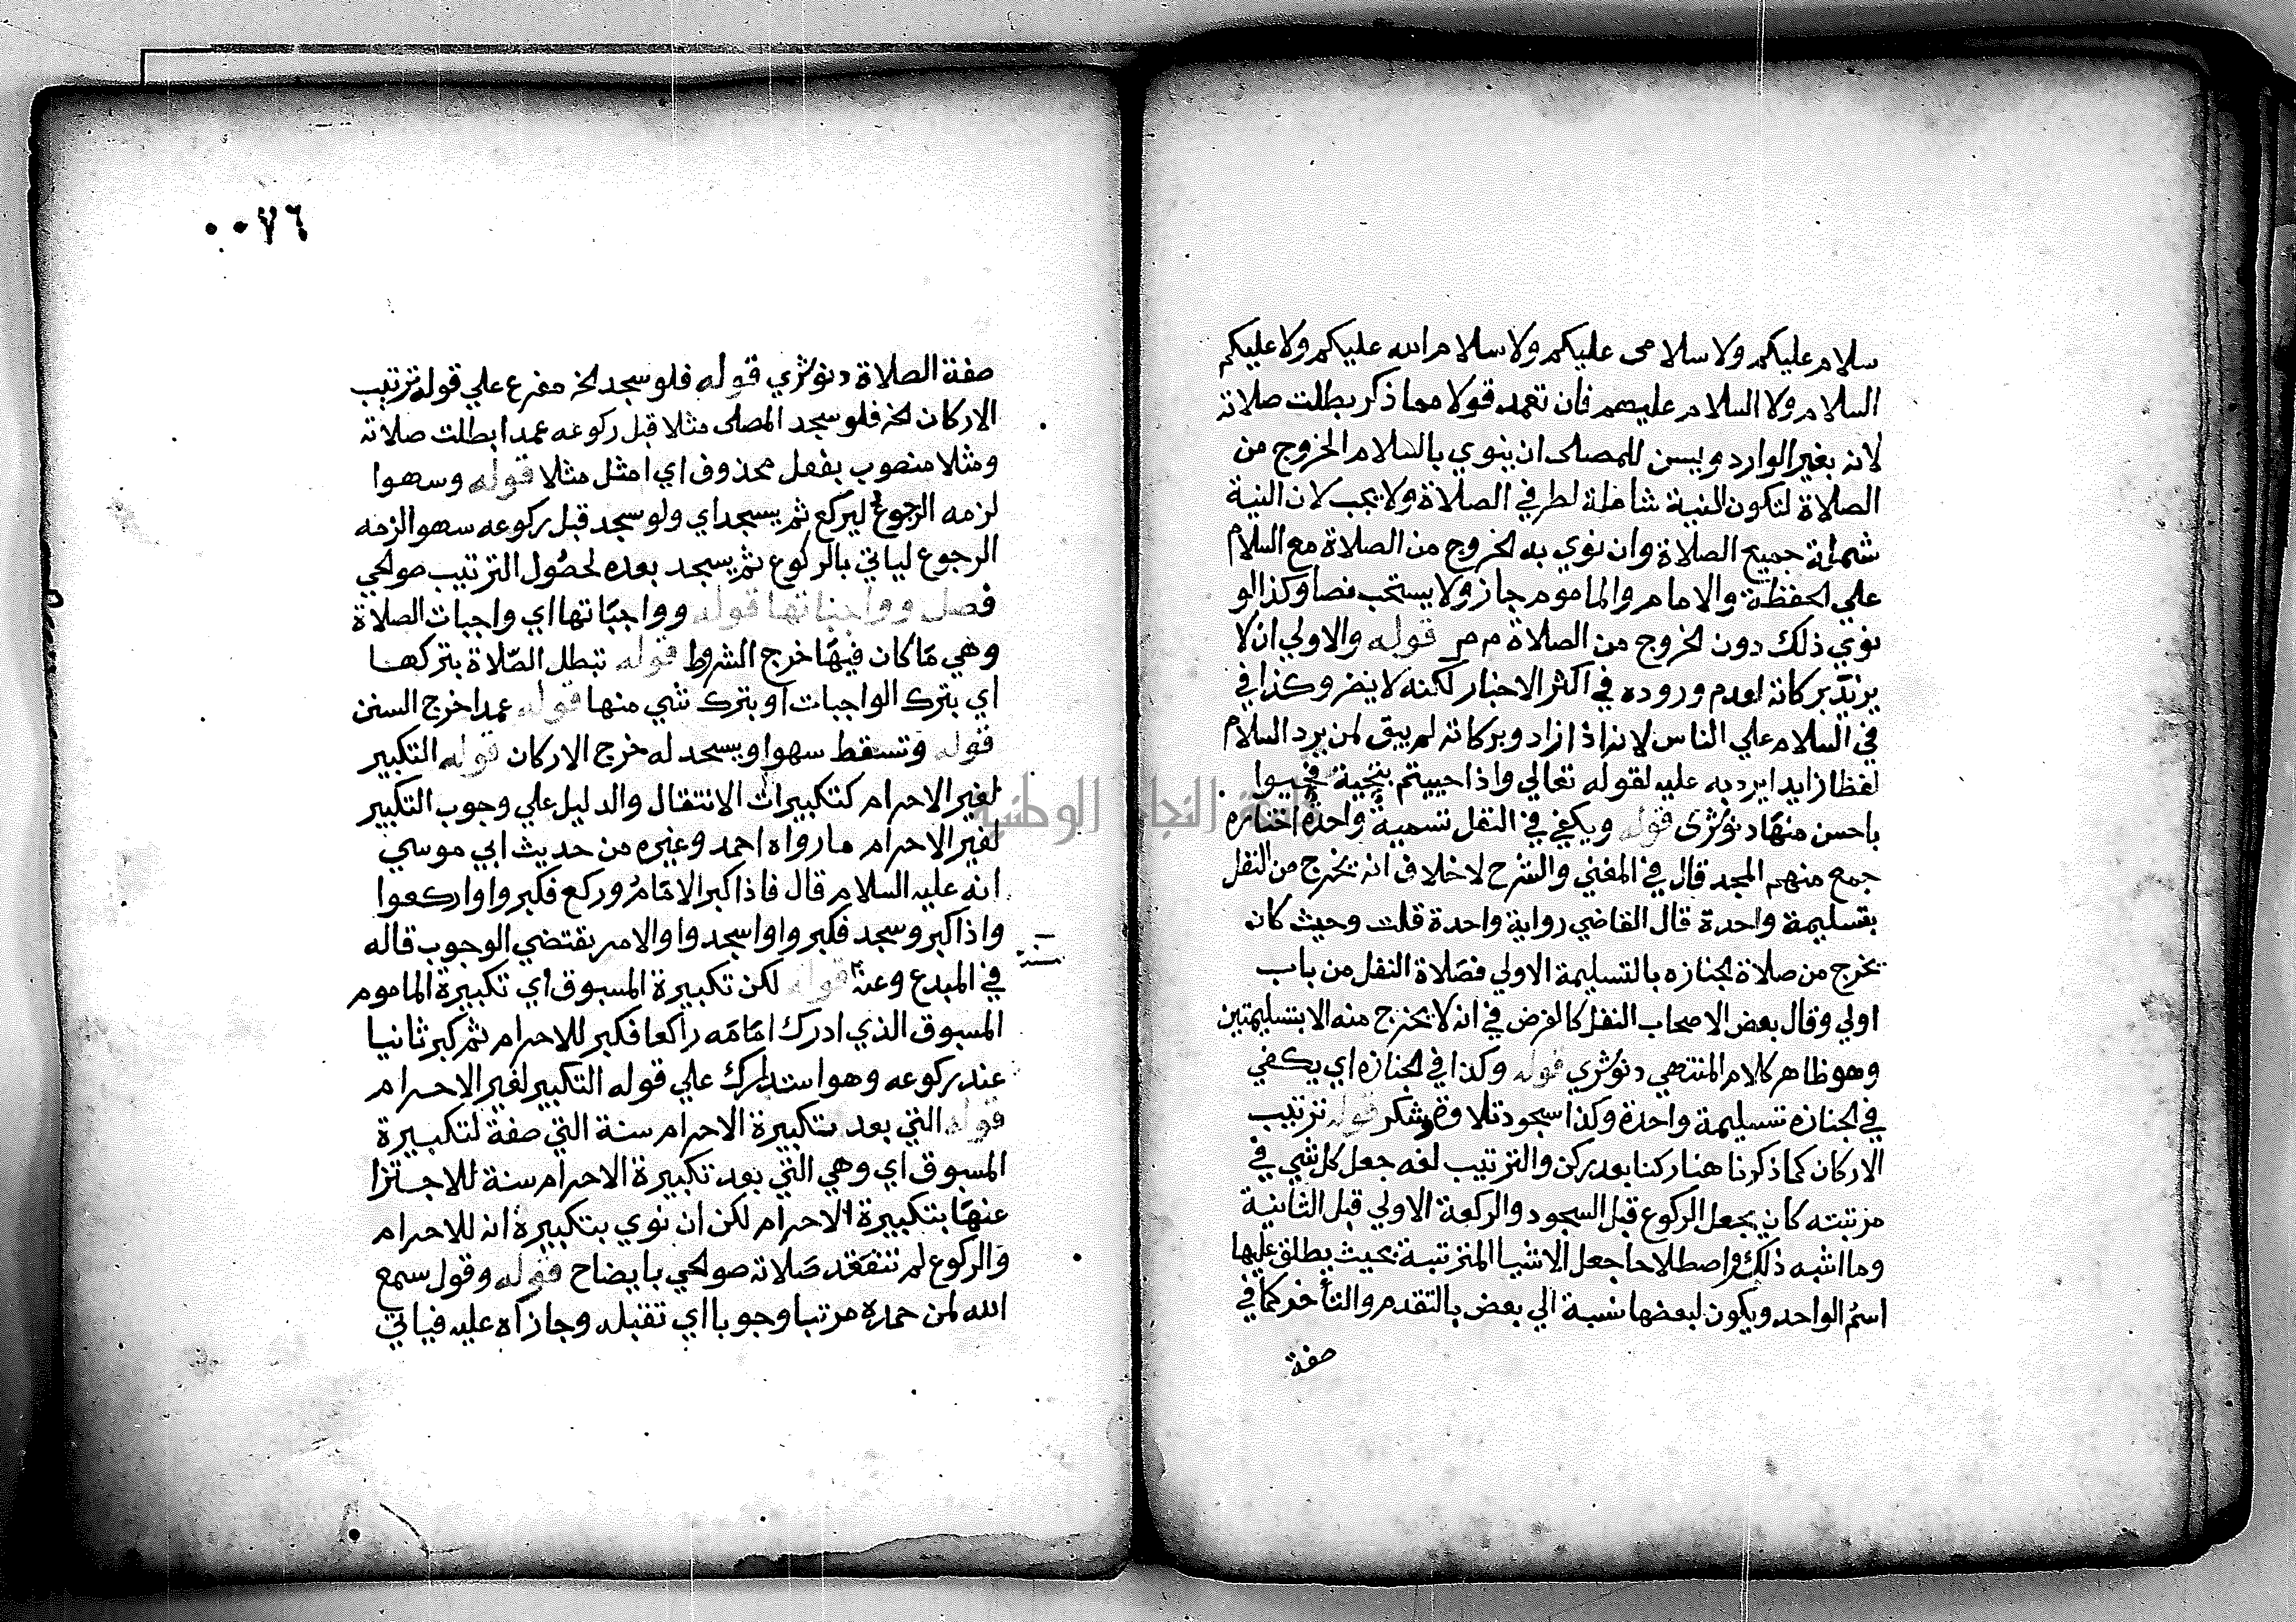 سلام عليكم ولا سلامى عليكم ولا سلام الله عليكم ولا عليكم
السلام ولا السلام عليهم فان تعمد قولا مما ذكر بطلت صلاته
لانه بغير الوارد ويسن للمصلى ان ينوي بالسلام الخروج من
الصلاة لتكون النية شاملة لطرفي الصلاة ولا يجب لان النية
شملت جميع الصلاة وان نوي به الخروج من الصلاة مع السلام
علي الحفظة والامام والماموم جاز ولا يستحب نصا وكذا لو
نوي ذلك دون الخروج من الصلاة م ص قوله والاولي ان لا
يزيد بركاته لعدم وروده في اكثر الاخبار لكنه لا يضر وكذا في
في السلام علي الناس لانه اذا زاد وبركاته لم يبق لمن يرد السلام
لفظا زايدا يرد به عليه لقوله تعالي واذا حييتم بتحية فحيوا
باحسن منها دنوشرى قوله ويكفي في النفل تسمية واحدة اختاره
جمع منهم المجد قال في المغني والشرح لا خلاف انه يخرج من النفل
بتسليمة واحدة قال القاضي رواية واحدة قلت وحيث كان
يخرج من صلاة الجنازه بالتسليمة الاولي فصلاة النفل من باب
اولي وقال بعض الاصحاب النفل كالفرض في انه لا يخرج منه الا بتسليمتين
وهو ظاهر كلام المنتهي دنوشري قوله وكذا في الجنازه اي يكفي
في الجنازه تسليمة واحدة وكذا سجود تلاوة وشكر قوله ترتيب
الاركان كما ذكرنا هنا ركنا بعد ركن والترتيب لغه جعل كل شي في
مرتبته كان يجعل الركوع قبل السجود والركعة الاولي قبل الثانية
وما اشبه ذلك واصطلاحا جعل الاشيا المترتبة بحيث يطلق عليها
اسم الواحد ويكون لبعضها نسبة الي بعض بالتقدم والتأخر كما في
صفة
٠٠٧٦
صفة الصلاة دنوشري قوله فلو سجد الخ مفرع علي قوله ترتيب
الاركان الخ فلو سجد المصلى مثلا قبل ركوعه عمدا بطلت صلاته
ومثلا منصوب بفعل محذوف اي امثل مثلا قوله وسهوا
لزمه الرجوع ليركع ثم يسجد اي ولو سجد قبل ركوعه سهوا لزمه
الرجوع لياتي بالركوع ثم يسجد بعده لحصول الترتيب صوالحي
فصل وواجباتها قوله وواجباتها اي واجبات الصلاة
وهي ما كان فيها خرج الشروط قوله تبطل الصلاة بتركها
اي بترك الواجبات او بترك شي منها قوله عمدا خرج السنن
قوله وتسقط سهوا ويسجد له خرج الاركان قوله التكبير
لغير الاحرام كتكبيرات الانتقال والدليل علي وجوب التكبير
لغير الاحرام ما رواه احمد وغيره من حديث ابي موسي
انه عليه السلام قال فاذا كبر الامام وركع فكبروا واركعوا
واذا كبر وسجد فكبروا واسجدوا والامر يقتضي الوجوب قاله
في المبدع وعنه قوله لكن تكبيرة المسبوق اي تكبيرة الماموم
المسبوق الذي ادرك امامه راكعا فكبر للاحرام ثم كبر ثانيا
عند ركوعه وهو استدارك علي قوله التكبير لغير الاحرام
قوله التي بعد تكبيرة الاحرام سنة التي صفة لتكبيرة
المسبوق اي وهي التي بعد تكبيرة الاحرام سنة للاجتزا
عنها بتكبيرة الاحرام لكن ان نوي بتكبيرة انه للاحرام
والركوع لم تنعقد صلاته صوالحي بايضاح قوله وقول سمع
الله لمن حمده مرتبا وجوبا اي تقبله وجازاه عليه فياتي